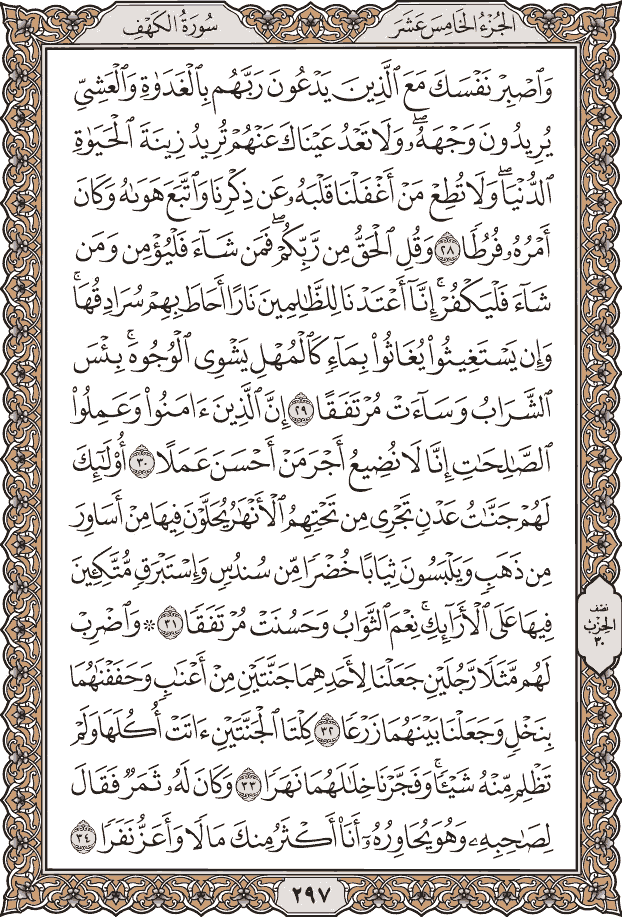 الجُزْءُ الخَامِسَ عَشَرَ
سُورَةُ الكَهْفِ
وَٱصْبِرْ نَفْسَكَ مَعَ ٱلَّذِينَ يَدْعُونَ رَبَّهُم بِٱلْغَدَوٰةِ وَٱلْعَشِيِّ
يُرِيدُونَ وَجْهَهُۥۖ وَلَا تَعْدُ عَيْنَاكَ عَنْهُمْ تُرِيدُ زِينَةَ ٱلْحَيَوٰةِ
ٱلدُّنْيَاۖ وَلَا تُطِعْ مَنْ أَغْفَلْنَا قَلْبَهُۥ عَن ذِكْرِنَا وَٱتَّبَعَ هَوَىٰهُ وَكَانَ
أَمْرُهُۥ فُرُطًا ٢٨ وَقُلِ ٱلْحَقُّ مِن رَّبِّكُمْۖ فَمَن شَآءَ فَلْيُؤْمِن وَمَن
شَآءَ فَلْيَكْفُرْۚ إِنَّآ أَعْتَدْنَا لِلظَّٰلِمِينَ نَارًا أَحَاطَ بِهِمْ سُرَادِقُهَاۚ
وَإِن يَسْتَغِيثُوا۟ يُغَاثُوا۟ بِمَآءٍ كَٱلْمُهْلِ يَشْوِى ٱلْوُجُوهَۚ بِئْسَ
ٱلشَّرَابُ وَسَآءَتْ مُرْتَفَقًا ٢٩ إِنَّ ٱلَّذِينَ ءَامَنُوا۟ وَعَمِلُوا۟
ٱلصَّٰلِحَٰتِ إِنَّا لَا نُضِيعُ أَجْرَ مَنْ أَحْسَنَ عَمَلًا ٣٠ أُو۟لَٰٓئِكَ
لَهُمْ جَنَّٰتُ عَدْنٍ تَجْرِى مِن تَحْتِهِمُ ٱلْأَنْهَٰرُ يُحَلَّوْنَ فِيهَا مِنْ أَسَاوِرَ
مِن ذَهَبٍ وَيَلْبَسُونَ ثِيَابًا خُضْرًا مِّن سُندُسٍ وَإِسْتَبْرَقٍ مُّتَّكِـِٔينَ
فِيهَا عَلَى ٱلْأَرَآئِكِۚ نِعْمَ ٱلثَّوَابُ وَحَسُنَتْ مُرْتَفَقًا ٣١ ۞ وَٱضْرِبْ
لَهُم مَّثَلًا رَّجُلَيْنِ جَعَلْنَا لِأَحَدِهِمَا جَنَّتَيْنِ مِنْ أَعْنَٰبٍ وَحَفَفْنَٰهُمَا
بِنَخْلٍ وَجَعَلْنَا بَيْنَهُمَا زَرْعًا ٣٢ كِلْتَا ٱلْجَنَّتَيْنِ ءَاتَتْ أُكُلَهَا وَلَمْ
تَظْلِم مِّنْهُ شَيْـًٔاۚ وَفَجَّرْنَا خِلَٰلَهُمَا نَهَرًا ٣٣ وَكَانَ لَهُۥ ثَمَرٌ فَقَالَ
لِصَٰحِبِهِۦ وَهُوَ يُحَاوِرُهُۥٓ أَنَا۠ أَكْثَرُ مِنكَ مَالًا وَأَعَزُّ نَفَرًا ٣٤
نصف
الحزب
٣٠
٢٩٧